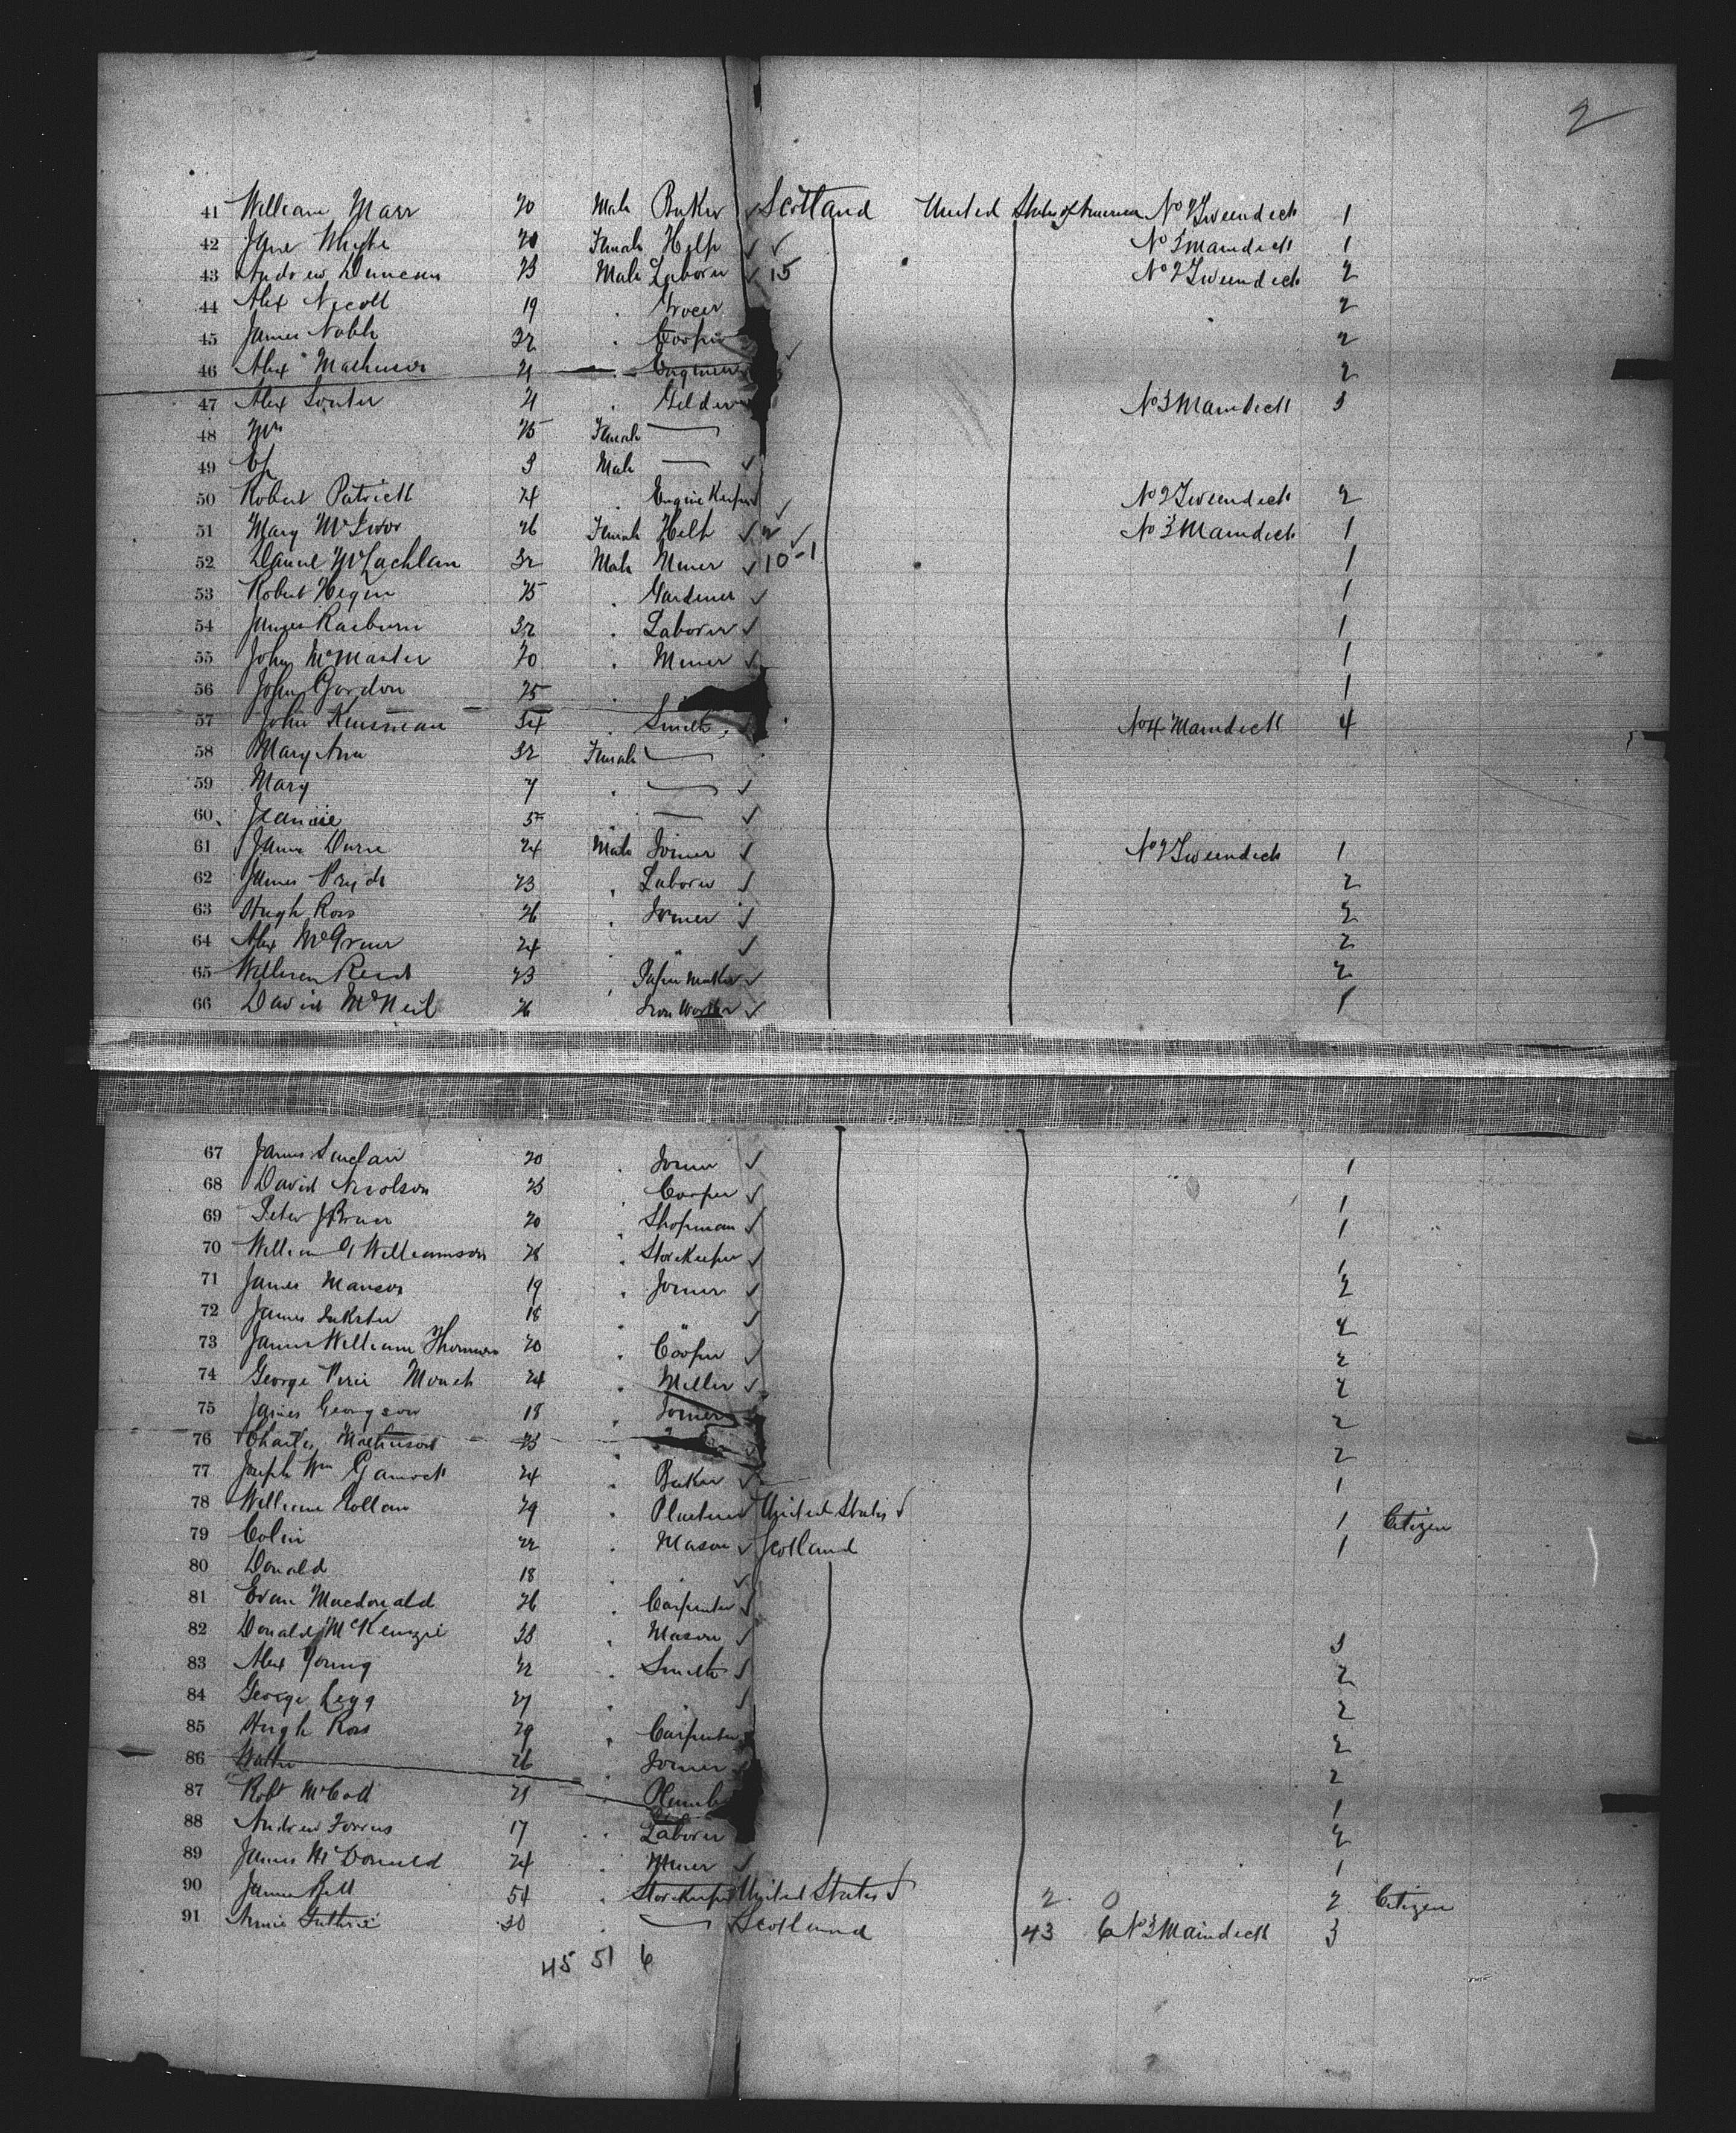 2
41 William Marr 20 Male Baker Scotland United States of America No 2 Tweendeck 1
42 Jane Whyte 20 Female Help No 3 Maindeck 1
43 Andrew Duncan 23 Male Laborer 15 No 2 Tweendeck 2
44 Alex Nicoll 19 Grocer 2
45 James Noble 32 Cooper 2
46 Alex Mathieson 21 Engineer 2
47 Alex Souter 21 Gilder No 3 Maindeck 3
48 Mrs 25 Female
49 3 Male
50 Robert Patrick 24 Engine Keeper No 2 Tweendeck 2
51 Mary McIvor 26 Female Help 2 No 3 Maindeck 1
52 Daniel McLachlan 32 Male Miner 10-1 1
53 Robert 25 Gardener 1
54 James Raeburn 32 Laborer 1
55 John McMaster 20 Miner 1
56 John Gordon 25 1
57 John 34 Smith No 4 Maindeck 4
58 Mary Ann 32 Female
59 Mary 7
60 Jeannie 5
61 24 Male Joiner No 2 Tweendeck 1
62 James Pryde 23 Laborer 2
63 Hugh Ross 26 Joiner 2
64 Alex 24 " 2
65 William Reid 23 Paper Maker 2
66 David McNeil 26 Iron Worker 1
67 James Sinclair 20 Joiner 1
68 David Nicolson 23 Cooper 1
69 Peter 20 Shopman 1
70 William G Williamson 28 Storekeeper 1
71 James Manson 19 Joiner 2
72 James Inkster 18 " 2
73 James William Thomson 20 Cooper 2
74 George Mouat 24 Miller 2
75 James Georgeson 18 Joiner 2
76 Charles Mathieson 23 " 2
77 Joseph Wm 24 Baker 1
78 William Gollan 29 Plasterer United States 1 Citizen
79 Colin 22 Mason Scotland 1
80 Donald 18
81 Evan Macdonald 26 Carpenter
82 Donald McKenzie 38 Mason 3
83 Alex Young 22 Smith 2
84 George Legg 27 2
85 Hugh Ross 29 Carpenter 2
86 Walter 26 Joiner 2
87 Robt McColl 21 1
88 Andrew 17 Laborer 2
89 James McDonald 24 Miner 1
90 James Bell 54 Storekeeper United States 2 0 2 Citizen
91 Annie Guthrie 30 Scotland 43 6 No 3 Maindeck 3
45 51 6